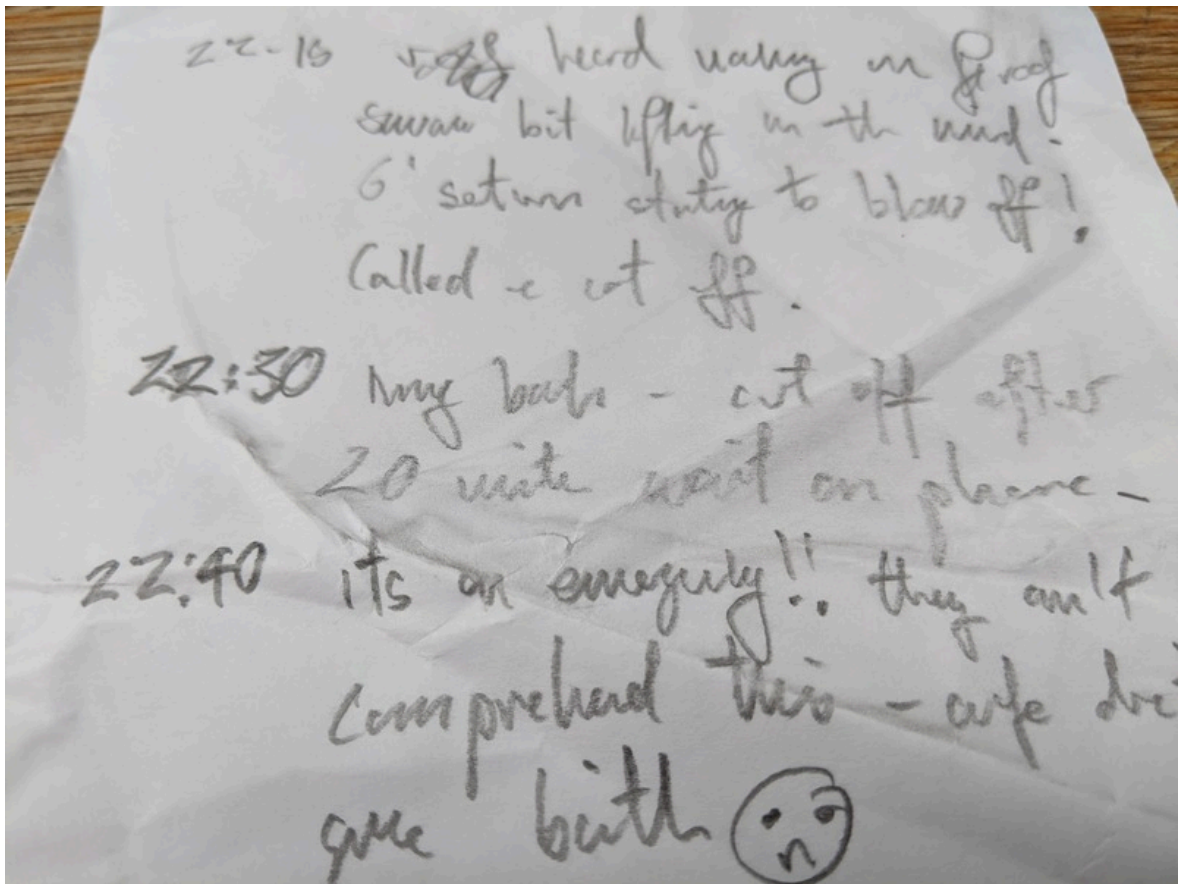 22-15 heard noises on roof
bit lifting in the wind.
6' section starting to blow off!
Called - cut off.
22:30 ring back - cut off after
20 minute wait on phone -
22:40 its an emergency!! they can't
comprehend this -
give birth